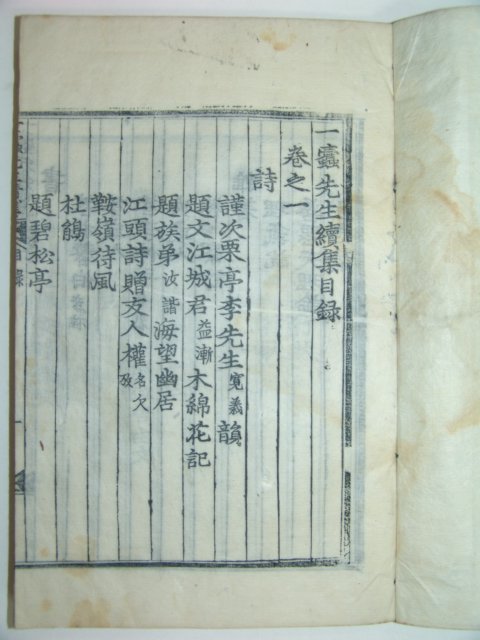 一蠹先生續集目録
卷之一
詩
謹次栗亭李先生寛義韻
題文江城君益漸木綿花記
題族弟汝諧海望幽居
江頭詩贈友人權名欠攷
鞍嶺待風
杜鵑
題碧松亭